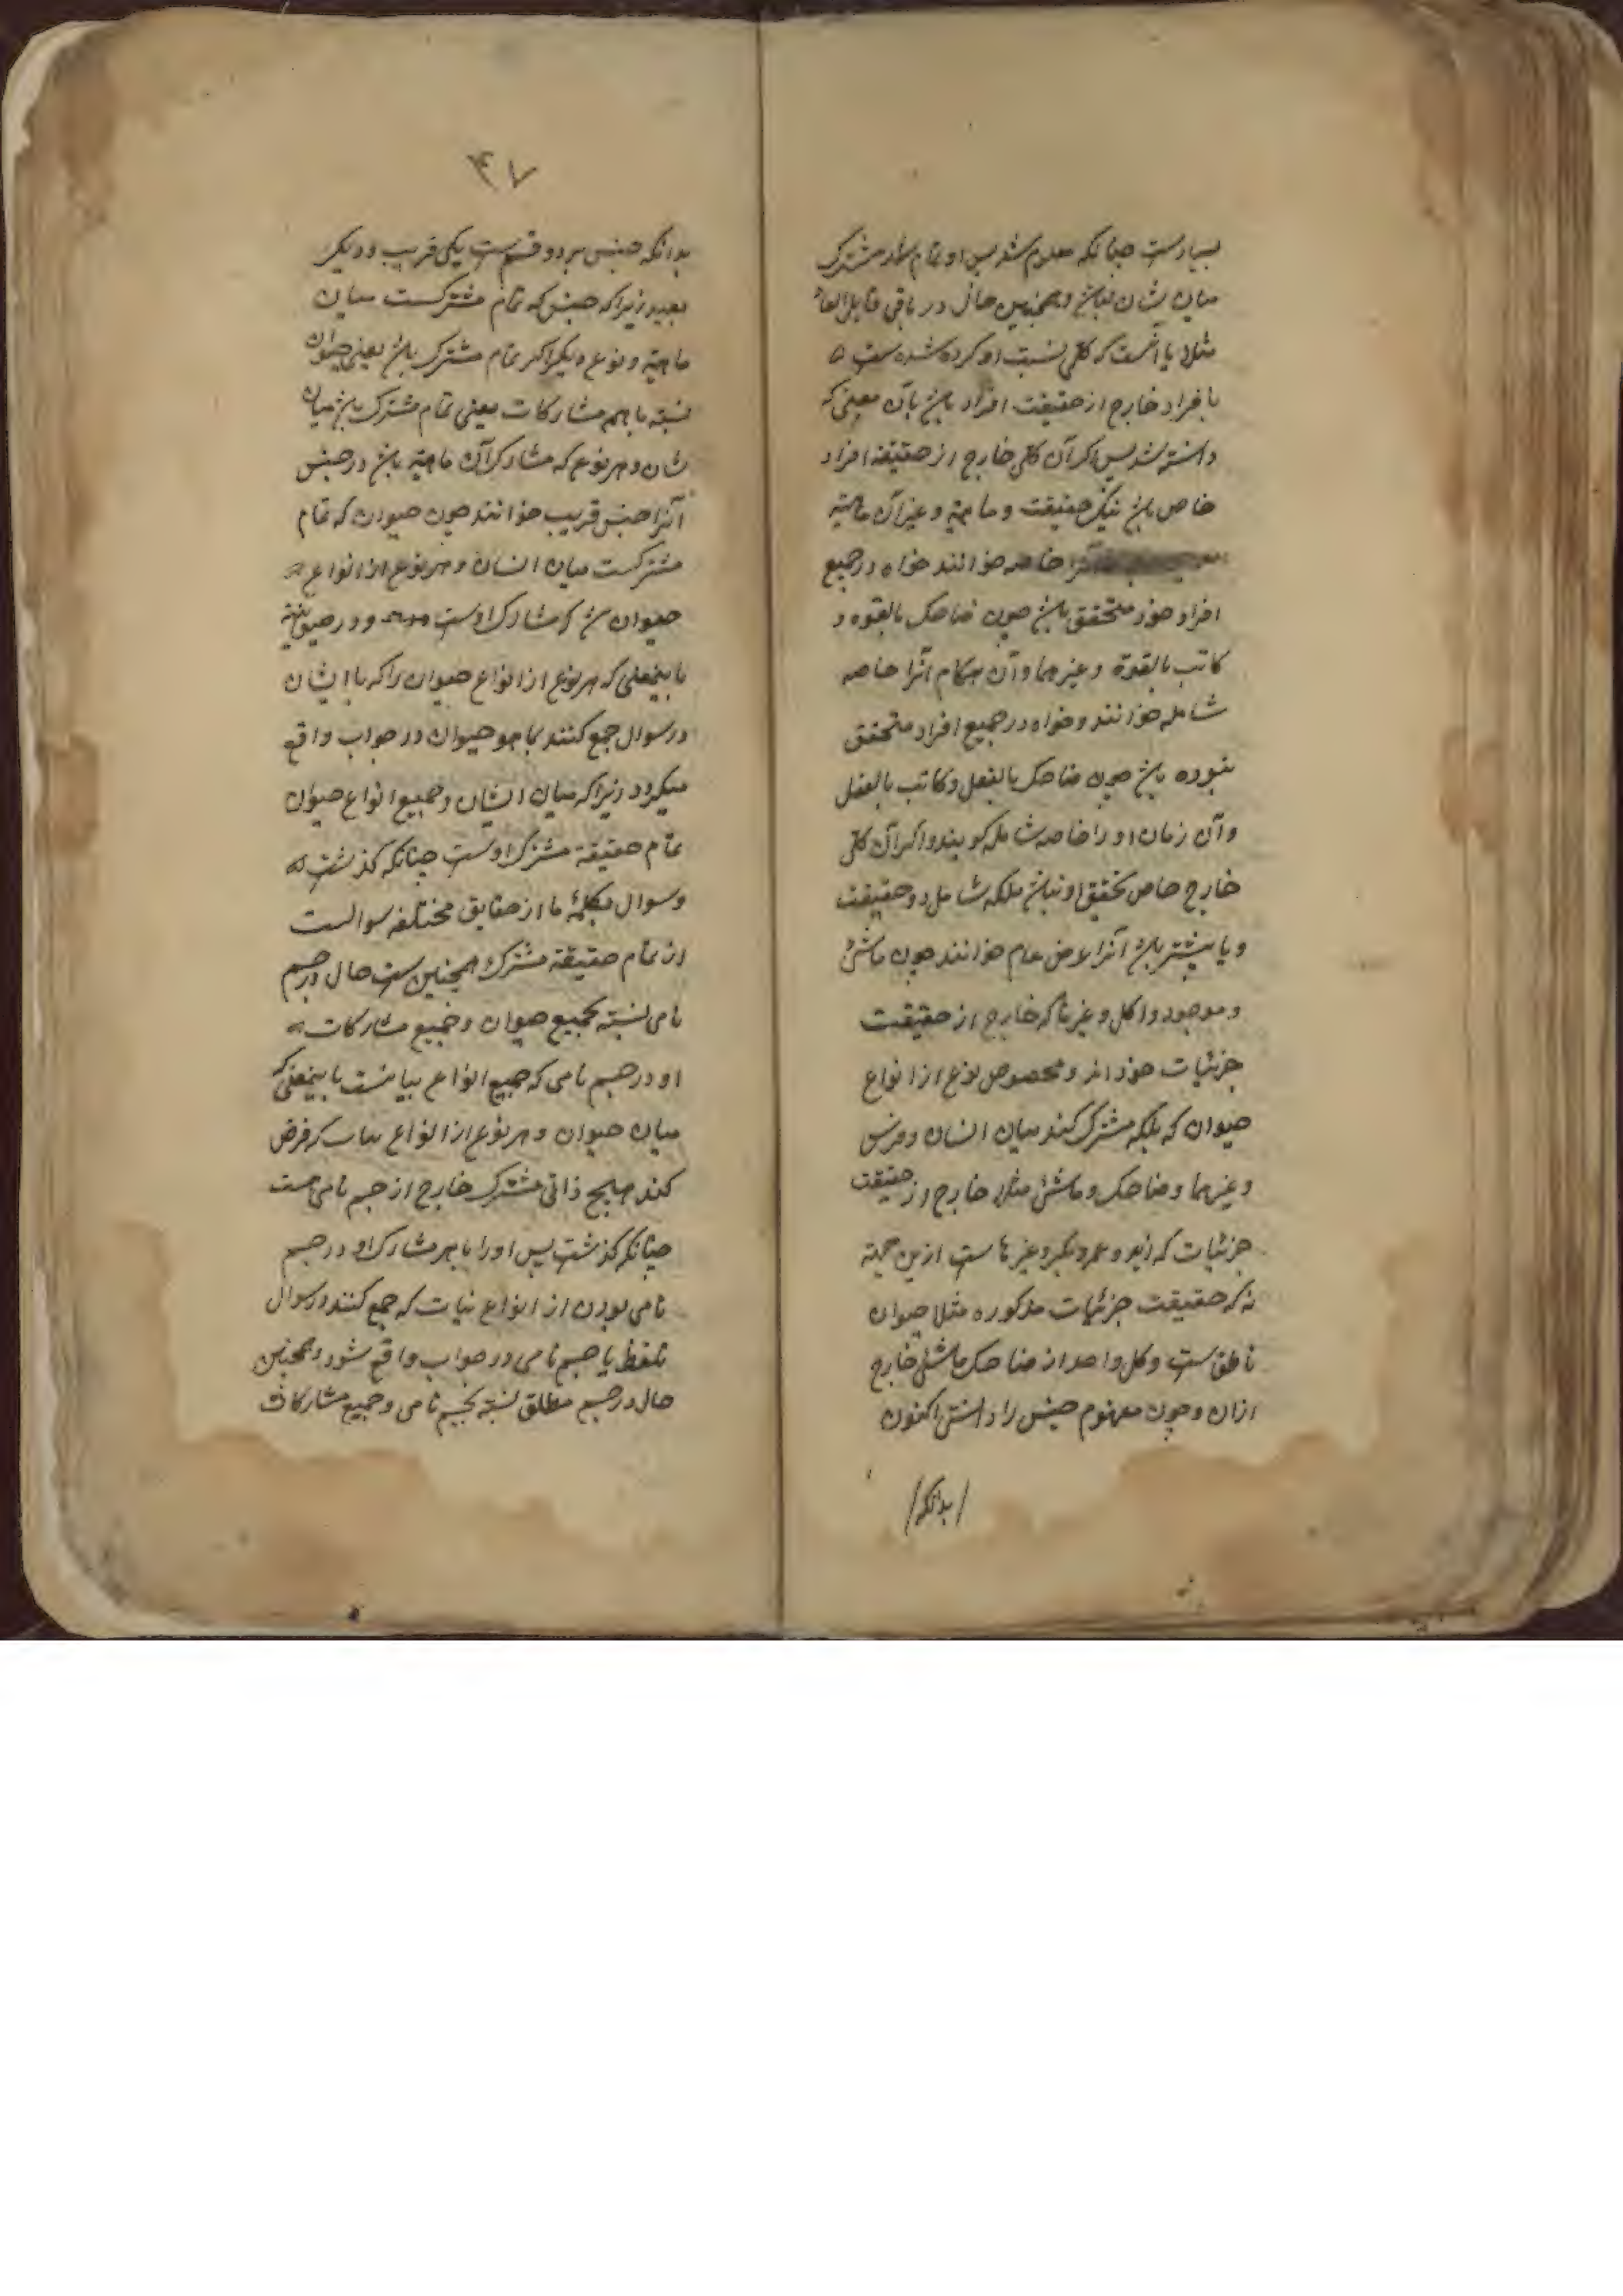 بسیارست چنانکه معلوم شد پس او تمام مشترک
میان شان نباشد و همچنین حال در باقی
مثلا یا آنست که کلی نسبت او کرده شده ست
بافراد خارج از حقیقت افراد باشد بآن معنی که
دانسته شد پس اگر آن کلی خارج از حقیقة افراد
خاص باشد بیک حقیقت و ماهیة و غیر آن ماهیة
آنرا خاصه خوانند خواه در جمیع
افراد خود متحقق باشد چون ضاحک بالقوه و
کاتب بالقوة و غیرهما و آن هنکام آنرا خاصه
شامله خوانند و خواه در جمیع افراد متحقق
نبوده باشد چون ضاحک بالفعل و کاتب بالفعل
و آن زمان او را خاصه شامله کویند و اکر آن کلی
خارج خاص بحقیقی او نباشد بلکه شامل دو حقیقت
و یا بیشتر باشد آنرا عرض عام خوانند چون ماشی
و موجود و اکل و غیرها که خارج از حقیقت
جزئیات خود اند و مخصوص نوع از انواع
حیوان که بلکه مشترک کنند میان انسان و فرس
و غیرهما و ضاحک و ماشی مثلا خارج از حقیقت
جزئیات که زید و عمرو بکر و غیرها ست ازین جهة
که حقیقت جزئیات مذکوره مثلا حیوان
ناطق ست و کل واحد از ضاحک ماشی خارج
ازان و چون مفهوم جنس را دانستی اکنون
/بدانکه/
۴۷
بدانکه جنس بر دو قسم ست یکی قریب و دیکر
بعید زیرا که جنس که تمام مشترکست میان
ماهیة و نوع دیکر اکر تمام مشترک باشد یعنی حیوان
نسبة با هم مشارکات یعنی تمام مشترک باشد میان
شان و هر نوع که مشارک آن ماهیة باشد در جنس
آنرا جنس قریب خوانند چون حیوان که تمام
مشترکست میان انسان و هر نوع از انواع
حیوان که مشارک اوست در حیوانیة
باینمعنی که هر نوع از انواع حیوان را که با ایشان
در سوال جمع کنند بما هو حیوان در جواب واقع
میکردد زیرا که میان ایشان و جمیع انواع حیوان
تمام حقیقة مشترک اوست چنانکه کذشت
و سوال بکلمهٔ ما از حقایق مختلفه سوالست
از تمام حقیقة مشترک همچنین ست حال در جسم
نامی نسبة بجمیع حیوان و جمیع مشارکات
او در جسم نامی که جمیع انواع نباتست باینمعنی که
میان حیوان و هر نوع از انواع نبات که فرض
کنند هیچ ذاتی مشترک خارج از جسم نامی نیست
چنانکه کذشت پس او را با هر مشارک او در جسم
نامی بودن از انواع نبات که جمع کنند در سوال
بلفظ یا جسم نامی در جواب واقع شود و همچنین
حال در جسم مطلق نسبة بجسم نامی و جمیع مشارکات